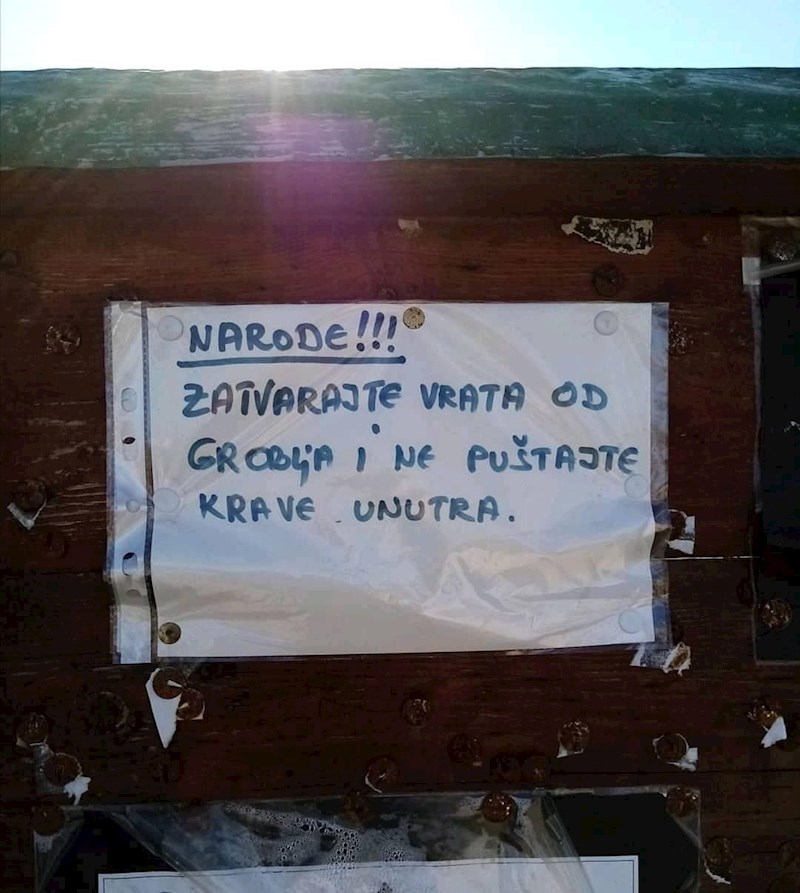 NARODE!!!
ZATVARAJTE VRATA OD
GROBLjA I NE PUŠTAJTE
KRAVE UNUTRA.